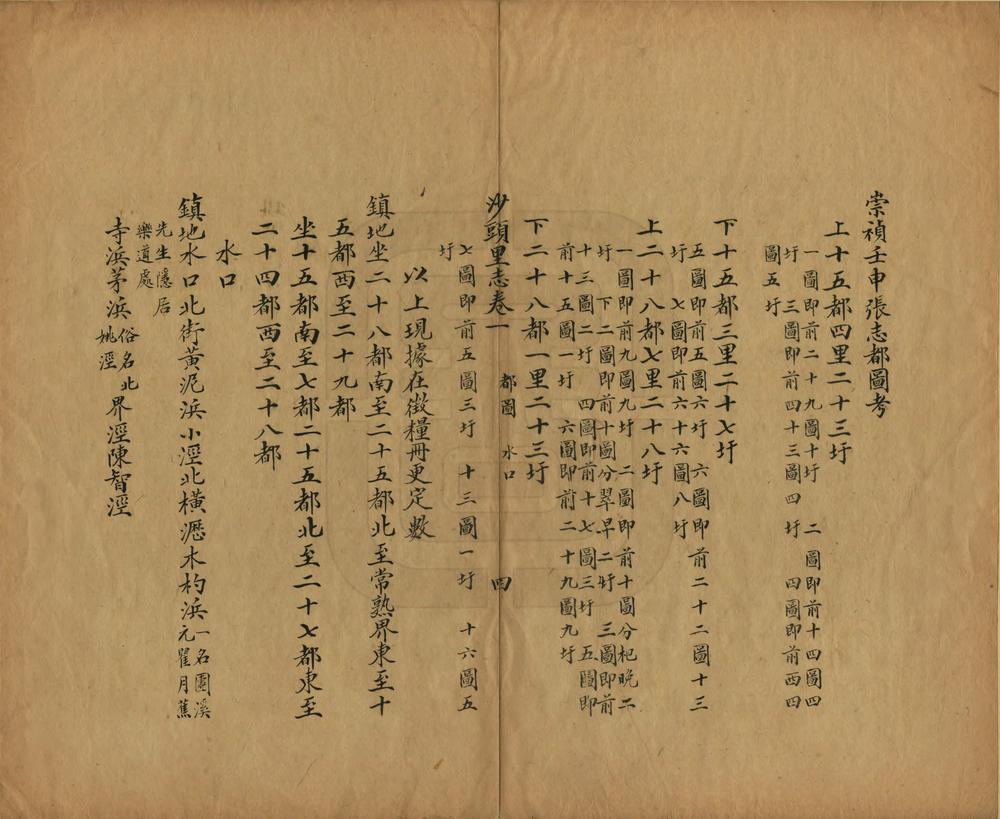 崇禎壬申張志都圖考
上十五都四里二十三圩
一圖即前二十九圖十圩 二圖即前十四圖四
圩 三圖即前四十三圖四圩 四圖即前西四
圖五圩
下十五都三里二十七圩
五圖即前五圖六圩 六圖即前二十二圖十三
圩 七圖即前六十六圖八圩
上二十八都七里二十八圩
一圖即前九圖九圩 二圖即前十圖分杷晚二
圩 下二圖即前十圖分翠早二圩 三圖即前
十三圖二圩 四圖即前十七圖三圩 五圖即
前十五圖一圩 六圖即前二十九圖九圩
下二十八都一里二十三圩
沙頭里志卷一 都圖 水口 四
七圖即前五圖三圩 十三圖一圩 十六圖五
圩
以上現據在徵糧冊更定數
鎮地坐二十八都南至二十五都北至常熟界東至十
五都西至二十九都
坐十五都南至七都二十五都北至二十七都東至
二十四都西至二十八都
水口
鎮地水口北街黃泥浜小涇北橫瀝木杓浜一名圓溪
元瞿月蕉
先生隱居
樂道處
寺浜茅浜俗名
姚涇北界涇陳智涇